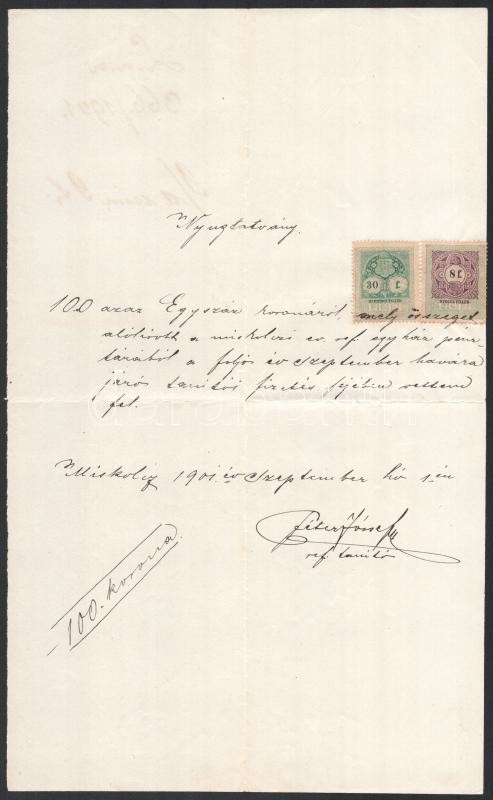 Nyugtatvány.
30 f.
8 f.
100 azaz Egyszáz koronáról, mely összeget
alólirott a miskolczi ev. ref. egyház pénz-
tárából a folyó év Szeptember havára
járó tanitói fizetés fejében vettem
fel.
Miskolcz 1901 év Szeptember hó 1-én
Péter József
ref. tanitó
100. korona.